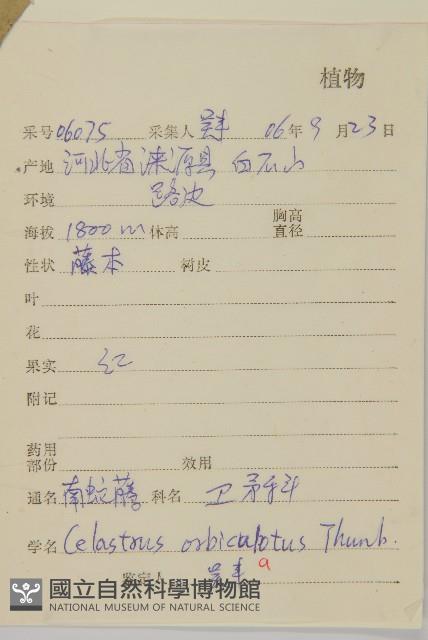 植物
采号06075 采集人 06年9月23日
产地 河北省涞源县 白石山
环境 路边
海拔 1800m 体高 胸高直径
性状 藤本 树皮
叶
花
果实 红
附记
药用部份 效用
通名 南蛇藤 科名 卫矛科
学名 Celastrus orbiculatus Thunb.
鉴定人 a
國立自然科學博物館
NATIONAL MUSEUM OF NATURAL SCIENCE